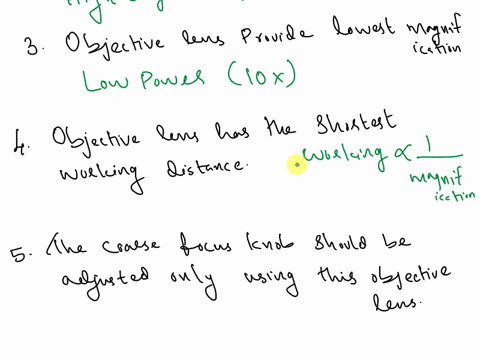 3. Objective lens Provide lowest magnif
ication
Low Power (10x)
4. Objective lens has the Shortest
working distance. Working ∝ 1/magnif
ication
5. The coarse focus knob should be
adjusted only using this objective
lens.